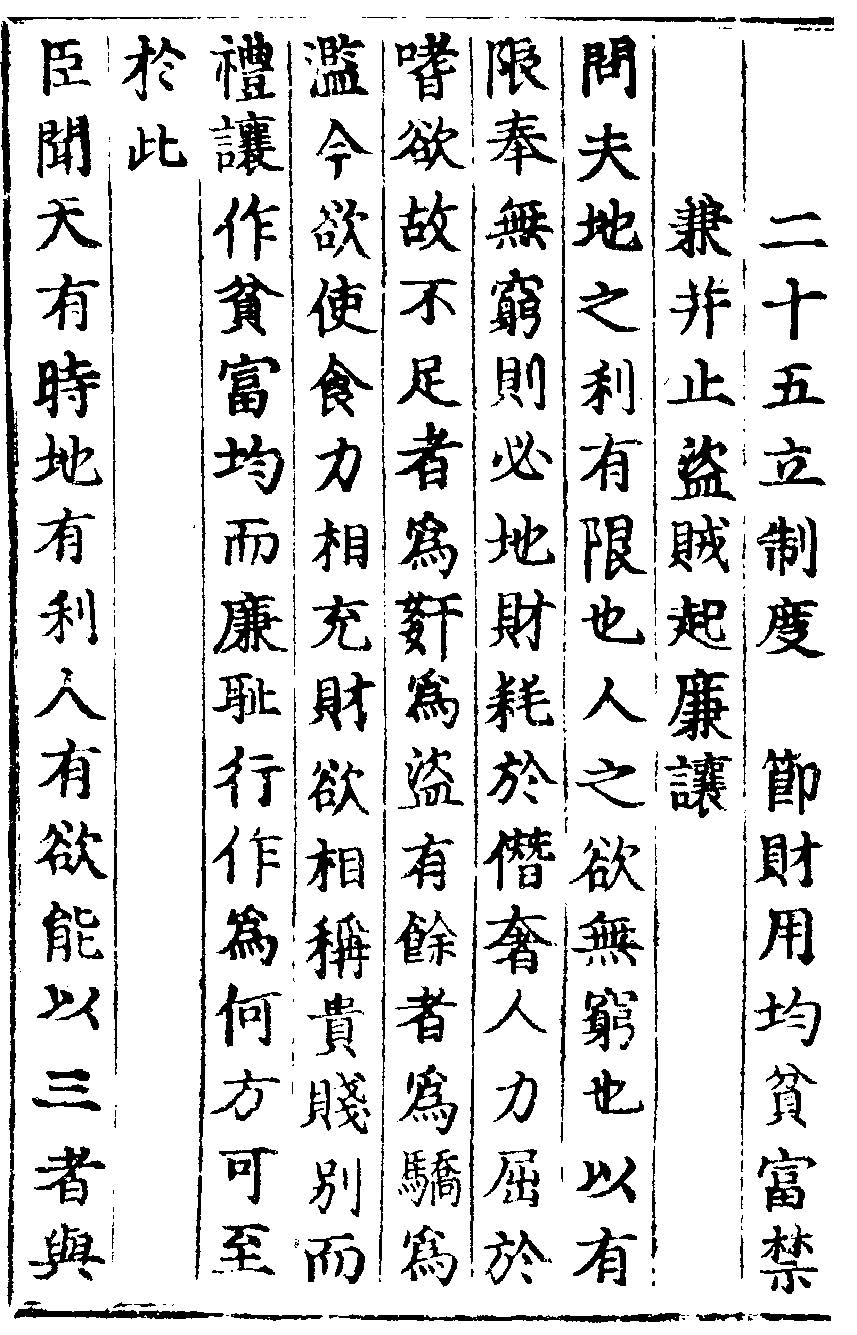 二十五立制度　節財用均貧富禁
兼并止盜賊起廉讓
問夫地之利有限也人之欲無窮也以有
限奉無窮則必地財耗於僭奢人力屈於
嗜欲故不足者爲姧爲盜有餘者爲驕爲
濫今欲使食力相充財欲相稱貴賤別而
禮讓作貧富均而廉恥行作爲何方可至
於此
臣聞天有時地有利人有欲能以三者與